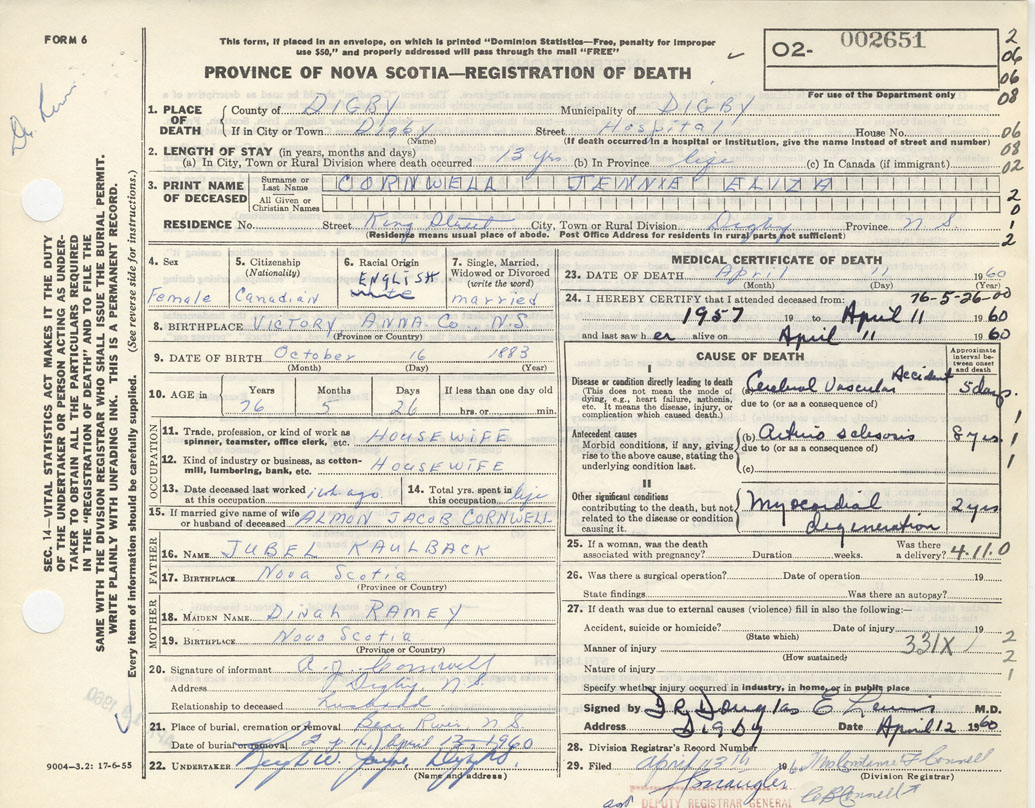 FORM 6
This form, if placed in an envelope, on which is printed "Dominion Statistics—Free, penalty for improper
use $50," and properly addressed will pass through the mail "FREE"
PROVINCE OF NOVA SCOTIA—REGISTRATION OF DEATH
O2- 002651
For use of the Department only
2
06
06
08
06
08
02
2
0
1
2
Dr. Lewis
SEC. 14—VITAL STATISTICS ACT MAKES IT THE DUTY
OF THE UNDERTAKER OR PERSON ACTING AS UNDER-
TAKER TO OBTAIN ALL THE PARTICULARS REQUIRED
IN THE "REGISTRATION OF DEATH" AND TO FILE THE
SAME WITH THE DIVISION REGISTRAR WHO SHALL ISSUE THE BURIAL PERMIT.
WRITE PLAINLY WITH UNFADING INK. THIS IS A PERMANENT RECORD.
Every item of information should be carefully supplied. (See reverse side for instructions.)
1. PLACE OF DEATH County of DIGBY Municipality of DIGBY
If in City or Town Digby Street Hospital House No.
(Name) (If death occurred in a hospital or institution, give the name instead of street and number)
2. LENGTH OF STAY (in years, months and days)
(a) In City, Town or Rural Division where death occurred 13 yrs (b) In Province life (c) In Canada (if immigrant)
3. PRINT NAME OF DECEASED Surname or Last Name CORNWELL JENNIE ELVIZA
All Given or Christian Names
RESIDENCE No. Street King Street City, Town or Rural Division Digby Province N S
(Residence means usual place of abode. Post Office Address for residents in rural parts not sufficient)
4. Sex Female
5. Citizenship (Nationality) Canadian
6. Racial Origin ENGLISH
7. Single, Married, Widowed or Divorced (write the word) married
8. BIRTHPLACE VICTORY, ANNA. Co N.S.
(Province or Country)
9. DATE OF BIRTH October 16 1883
(Month) (Day) (Year)
10. AGE in Years Months Days If less than one day old
76 5 26 hrs. or min.
OCCUPATION
11. Trade, profession, or kind of work as spinner, teamster, office clerk, etc. HOUSEWIFE
12. Kind of industry or business, as cotton-mill, lumbering, bank, etc. HOUSEWIFE
13. Date deceased last worked at this occupation ago
14. Total yrs. spent in this occupation life
15. If married give name of wife or husband of deceased ALMON JACOB CORNWELL
FATHER
16. NAME JUBEL KAULBACK
17. BIRTHPLACE Nova Scotia
(Province or Country)
MOTHER
18. MAIDEN NAME DINAH RAMEY
19. BIRTHPLACE Nova Scotia
(Province or Country)
20. Signature of informant A. J. Cornwell
Address Digby N.S.
Relationship to deceased husband
21. Place of burial, cremation or removal Bear River N.S.
Date of burial or removal 2 p.m. April 13-1960
22. UNDERTAKER
(Name and address)
9004-3.2: 17-6-55
MEDICAL CERTIFICATE OF DEATH
23. DATE OF DEATH April 11 1960
(Month) (Day) (Year)
24. I HEREBY CERTIFY that I attended deceased from: 76-5-26-00
1957 19 to April 11 1960
and last saw her alive on April 11 1960
CAUSE OF DEATH
Approximate interval between onset and death
I
Disease or condition directly leading to death
(This does not mean the mode of dying, e.g., heart failure, asthenia, etc. It means the disease, injury, or complication which caused death.)
(a) Cerebral Vascular Accident 5 days.
due to (or as a consequence of)
Antecedent causes
Morbid conditions, if any, giving rise to the above cause, stating the underlying condition last.
(b) 8 yrs
due to (or as a consequence of)
(c)
1
1
1
II
Other significant conditions contributing to the death, but not related to the disease or condition causing it.
Myocardial degeneration 2 yrs
25. If a woman, was the death associated with pregnancy? Duration weeks. Was there a delivery? 4.11.0
26. Was there a surgical operation? Date of operation 19
State findings Was there an autopsy?
27. If death was due to external causes (violence) fill in also the following:—
Accident, suicide or homicide? Date of injury 19
(State which)
Manner of injury 331X
(How sustained)
Nature of injury
2
2
1
Specify whether injury occurred in industry, in home, or in public place
Signed by DR Douglas E Lewis M.D.
Address DIGBY Date April 12 1960
28. Division Registrar's Record Number
29. Filed April 13th 196
(Division Registrar)
DEPUTY REGISTRAR GENERAL